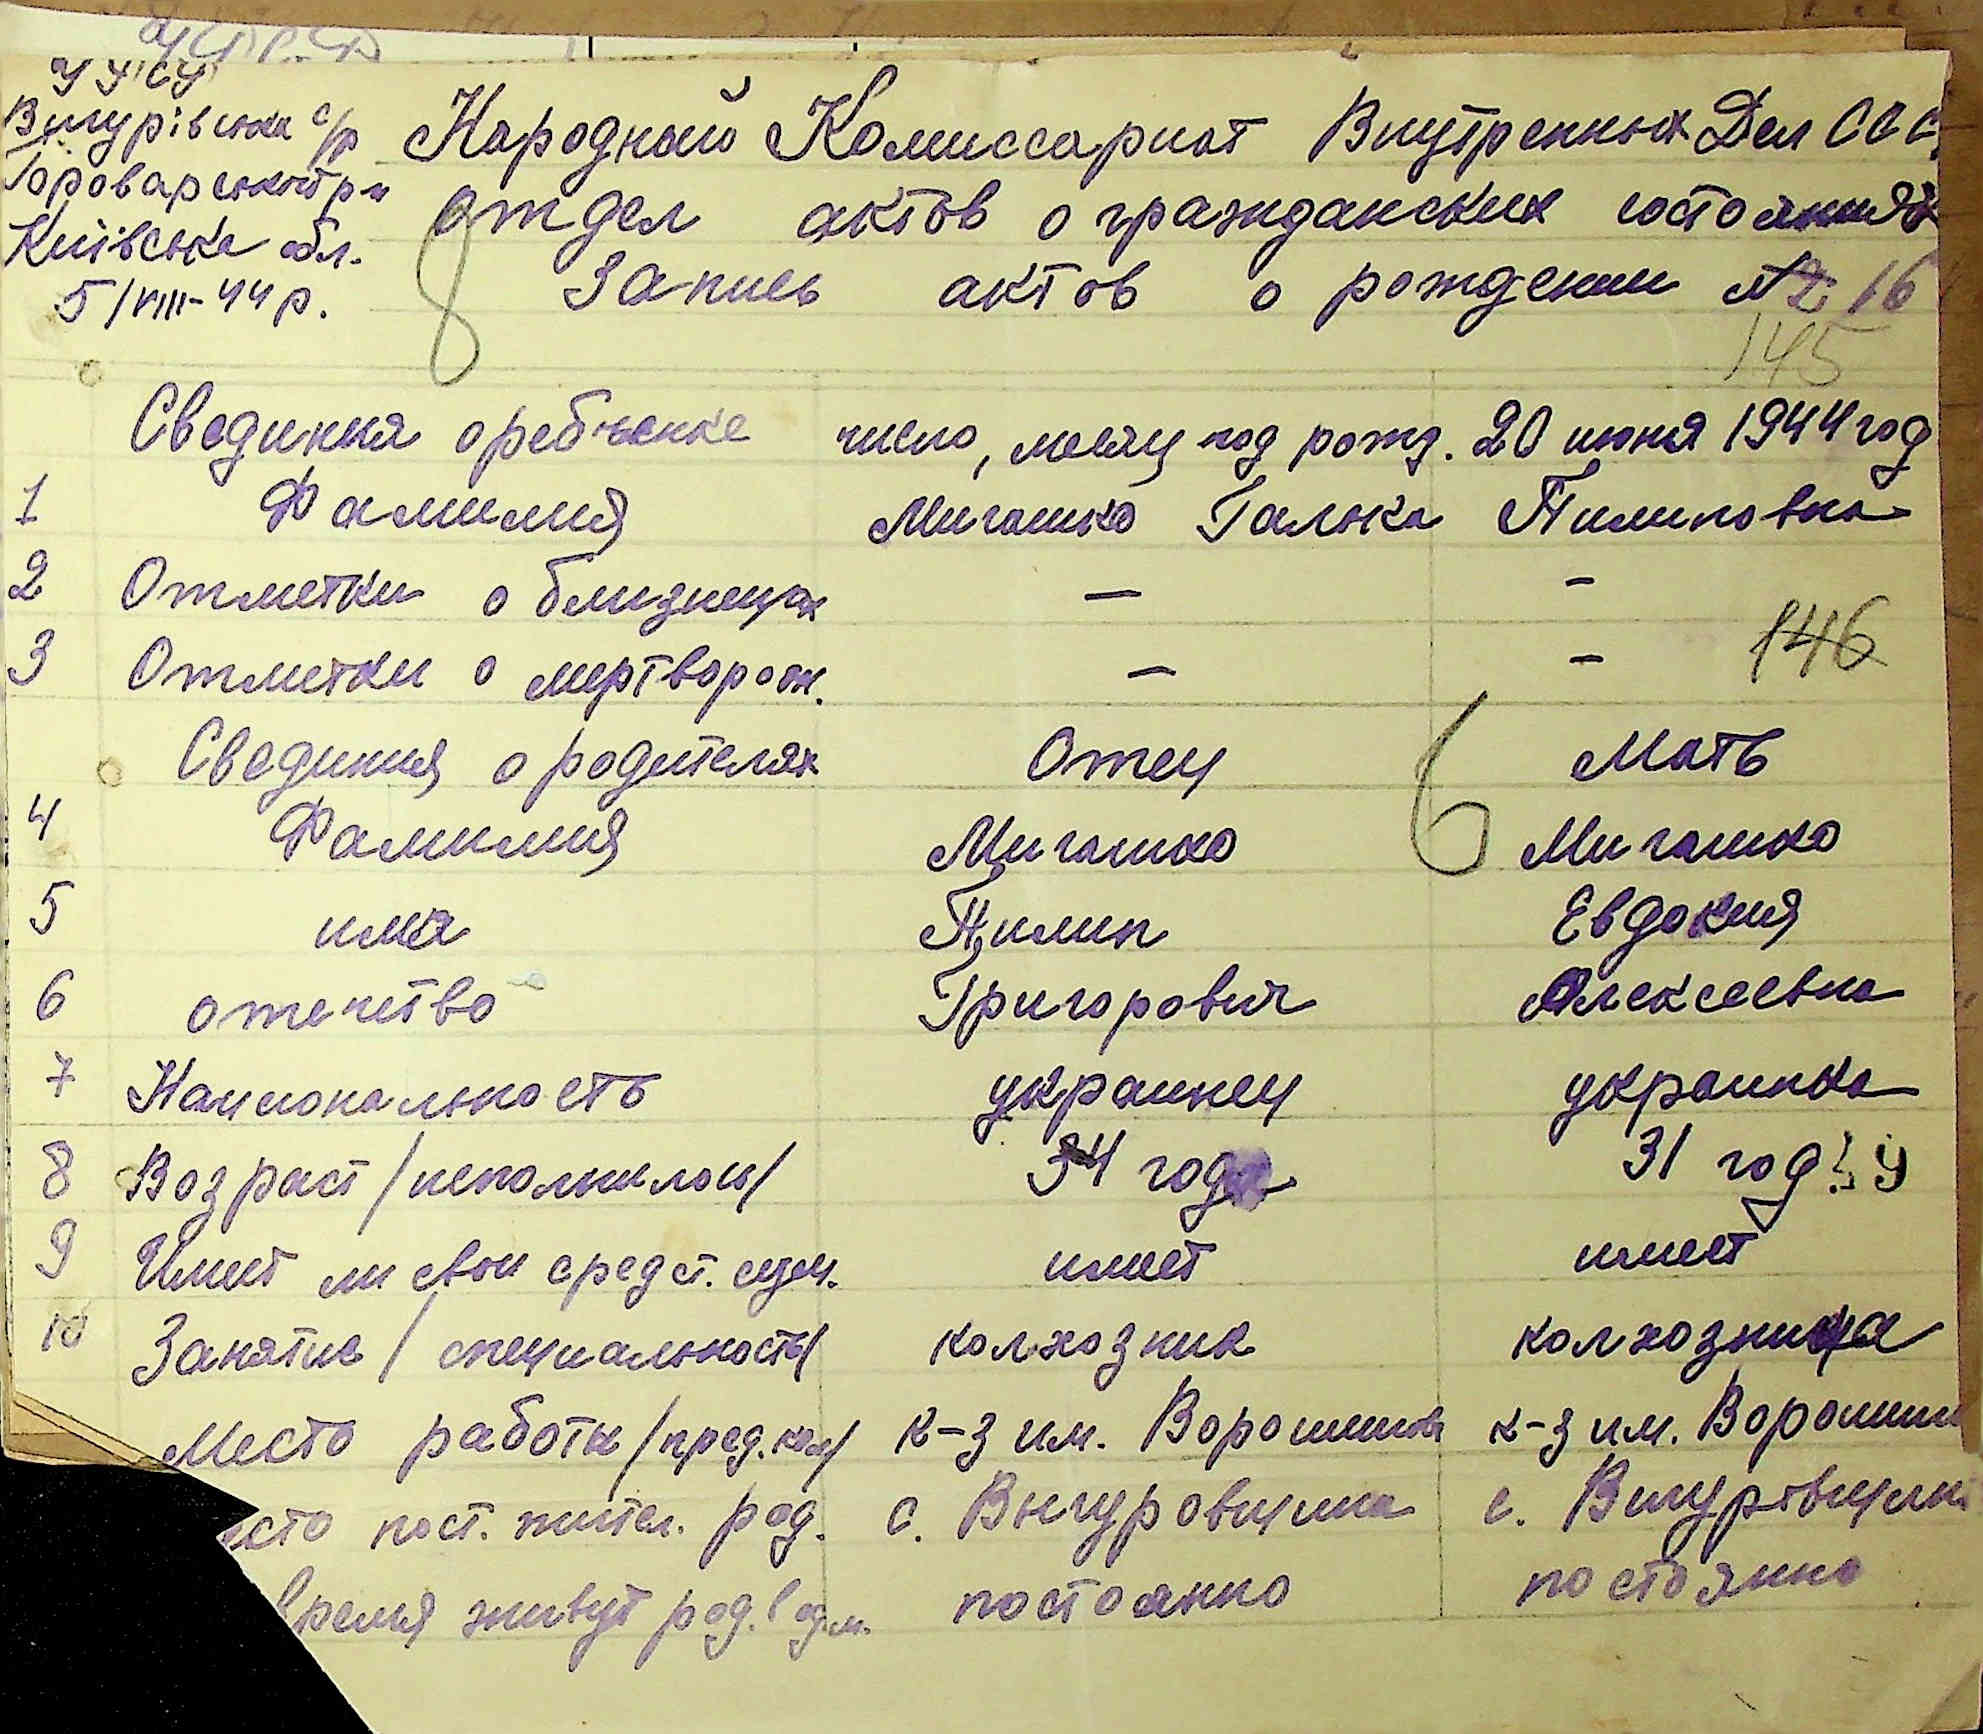 УУСУ
Вигурівська с/р
Броварський р-н
Київська обл.
5/VIII-44 р.
Народный Комиссариат Внутренних Дел ССС
отдел актов о гражданских состояниях
Запись актов о рождении № 16
145
Сведения о ребёнке число, месяц год рожд. 20 июня 1944 год
1 Фамилия Мигашко Галька Пилиповна
2 Отметки о близнецах — -
3 Отметки о мертворож. — -
146
Свединия о родителях Отец Мать
4 Фамилия Мигашко Мигашко
5 имя Пилип Евдокия
6 отечество Григорович Алексеевна
7 Национальность украинец украинка
8 Возраст /исполнилось/ 34 года 31 год
9 Имеет ли свои средст. сущ. имеет имеет
10 Занятие / специальность/ колхозник колхозница
Место работы /пред. кол/ к-з им. Ворошилова к-з им. Ворошил
есто пост. жител. род. с. Выгуровщина с. Вигуровщин
время живут род. в одм. постоянно постоянно